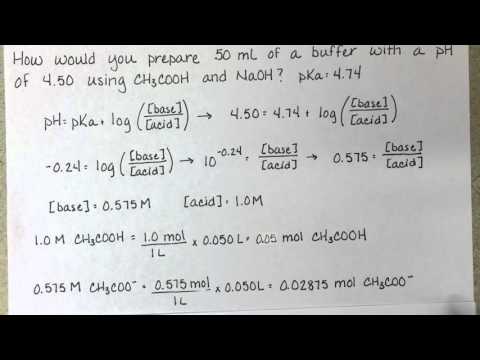 How would you prepare 50 mL of a buffer with a pH
of 4.50 using CH₃COOH and NaOH? pKa = 4.74
pH = pKa + log([base]/[acid]) → 4.50 = 4.74 + log([base]/[acid])
-0.24 = log([base]/[acid]) → 10^-0.24 = [base]/[acid] → 0.575 = [base]/[acid]
[base] = 0.575 M [acid] = 1.0 M
1.0 M CH₃COOH = 1.0 mol/1 L × 0.050 L = 0.05 mol CH₃COOH
0.575 M CH₃COO⁻ = 0.575 mol/1 L × 0.050 L = 0.02875 mol CH₃COO⁻